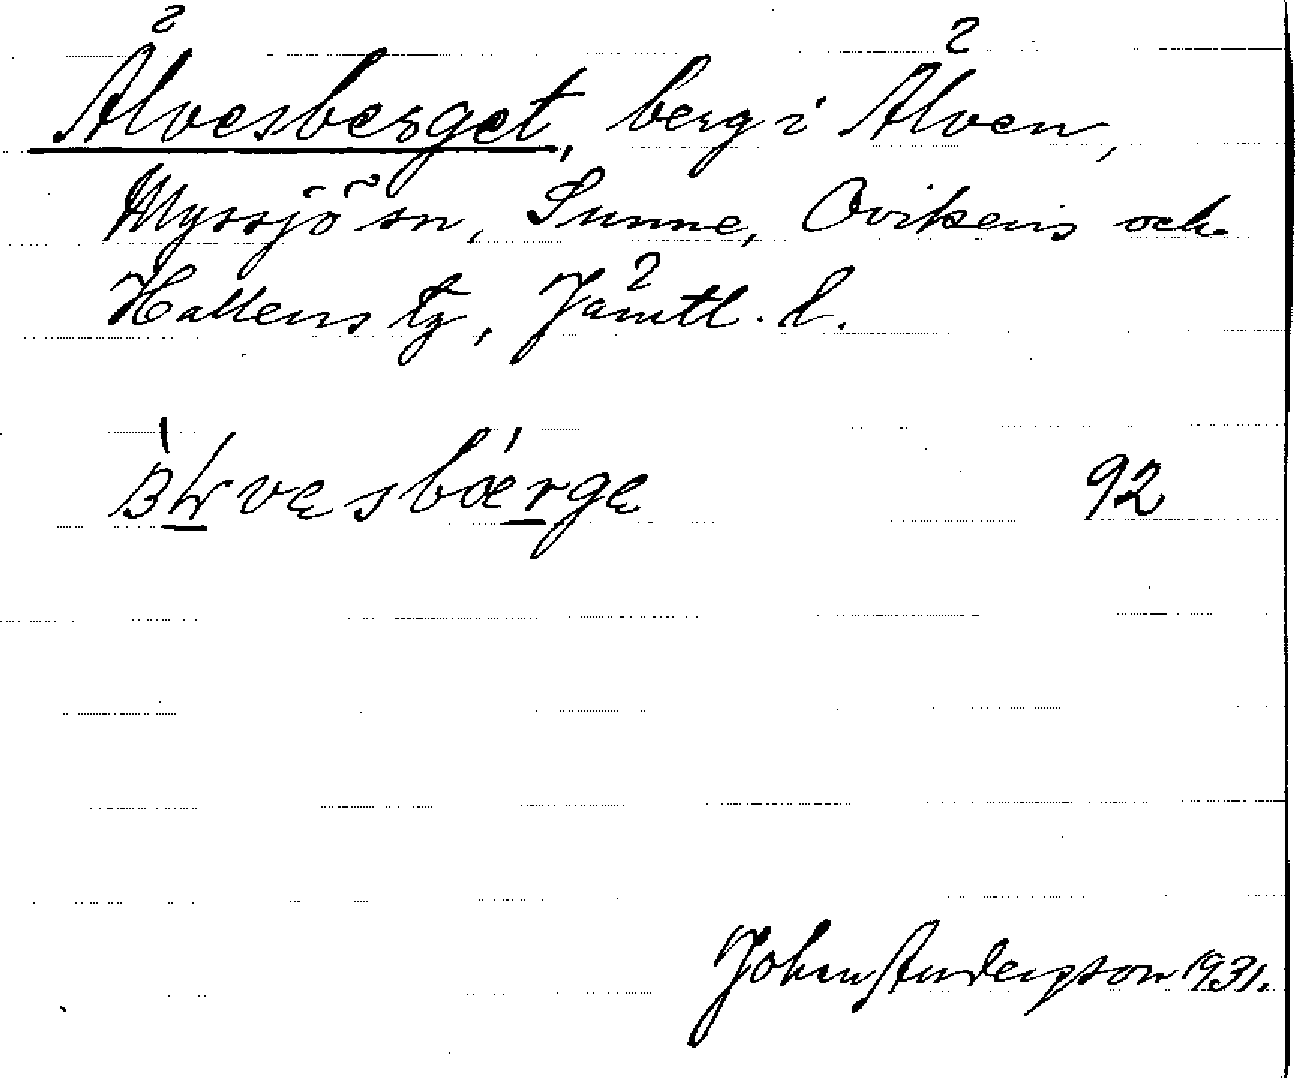 Älvesberget, berg i Älven,
Myssjö sn, Sunne, Ovikens och
Hallens tg, Jämtl. l.
92
Johan Anderpson 1931.